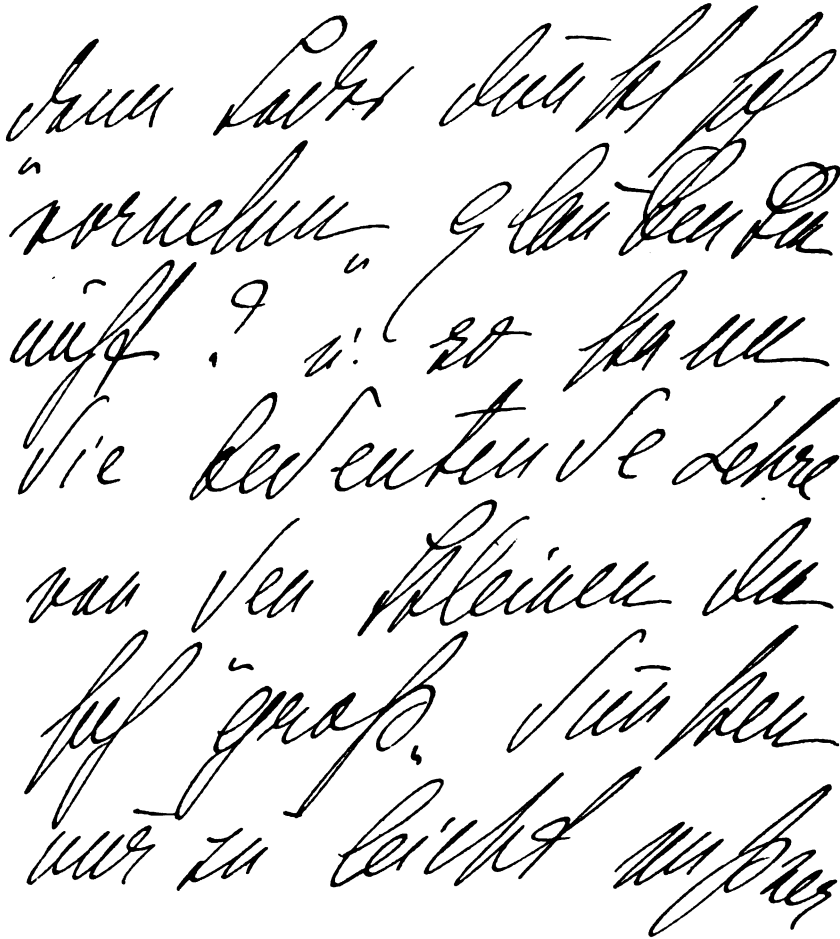 denn Jeder dünkt sich
"vornehm" glauben Sie
nicht? u: so kann
die bedeutende Lehre
von den Kleinen die
sich "groß" dünken
nur zu leicht